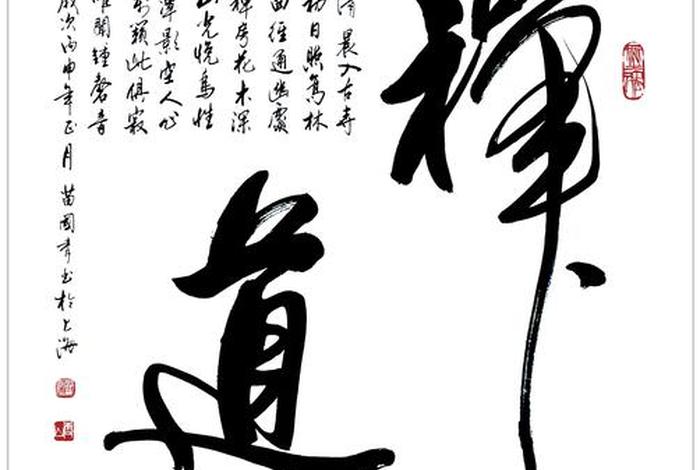 禅道
清晨入古寺
初日照高林
曲徑通幽處
禪房花木深
山光悅鳥性
潭影空人心
萬籟此俱寂
唯聞鐘磬音
歲次丙申年正月苗國书於上海